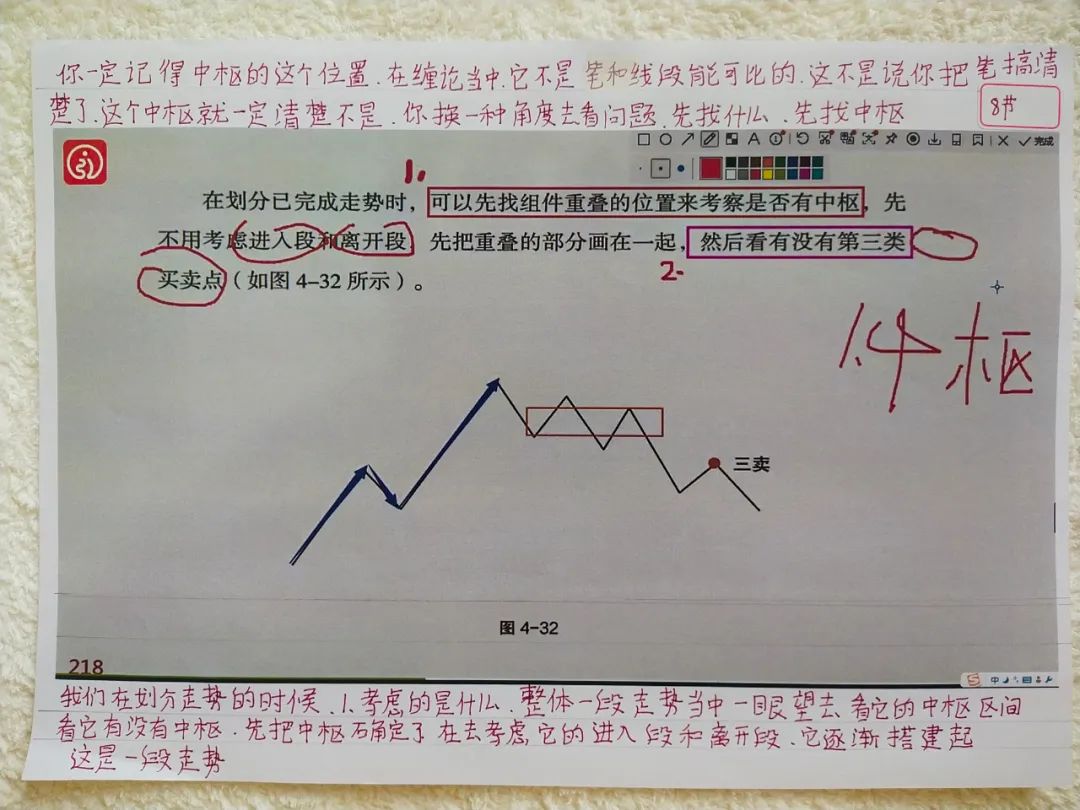 你一定记得中枢的这个位置.在缠论当中.它不是笔和线段能可比的.这不是说你把笔搞清
楚了.这个中枢就一定清楚不是.你换一种角度去看问题.先找什么.先找中枢
8节
完成
1.
在划分已完成走势时，可以先找组件重叠的位置来考察是否有中枢，先
不用考虑进入段和离开段，先把重叠的部分画在一起，然后看有没有第三类
2.
买卖点（如图 4-32 所示）。
1.中枢
三卖
图 4-32
218
中
我们在划分走势的时候.1.考虑的是什么.整体一段走势当中一眼望去看它的中枢区间
看它有没有中枢.先把中枢确定了在去考虑它的进入段和离开段.它逐渐搭建起
这是一段走势